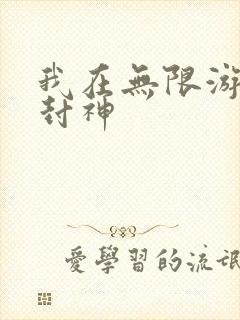 我在無限游
封神
愛學習的流氓